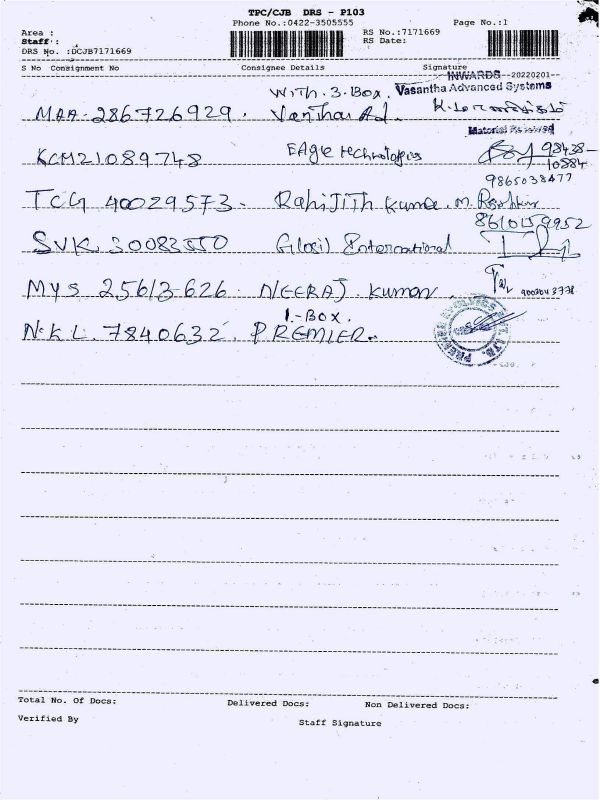 TPC/CJB DRS - P103
Phone No.:0422-3505555 Page No.:1
Area : RS No.:7171669
Staff : RS Date:
DRS No. :DCJB7171669
S No Consignment No Consignee Details Signature
INWARDS --20220201--
WITH. 3. Box. Vasantha Advanced Systems
MAA. 286726929. Vasantha Ad.
Material Received
KCM21089748 EAgle technologies 98438-
10884
9865038477
TCG 40029573. Ranjith Kumar. M.
8610159952
SVK 30083550 Glosil International
MYS 25613626. NEERAJ. Kuman
1.-Box.
N.K.L. 7840632. PREMIER.
Total No. Of Docs: Delivered Docs: Non Delivered Docs:
Verified By Staff Signature